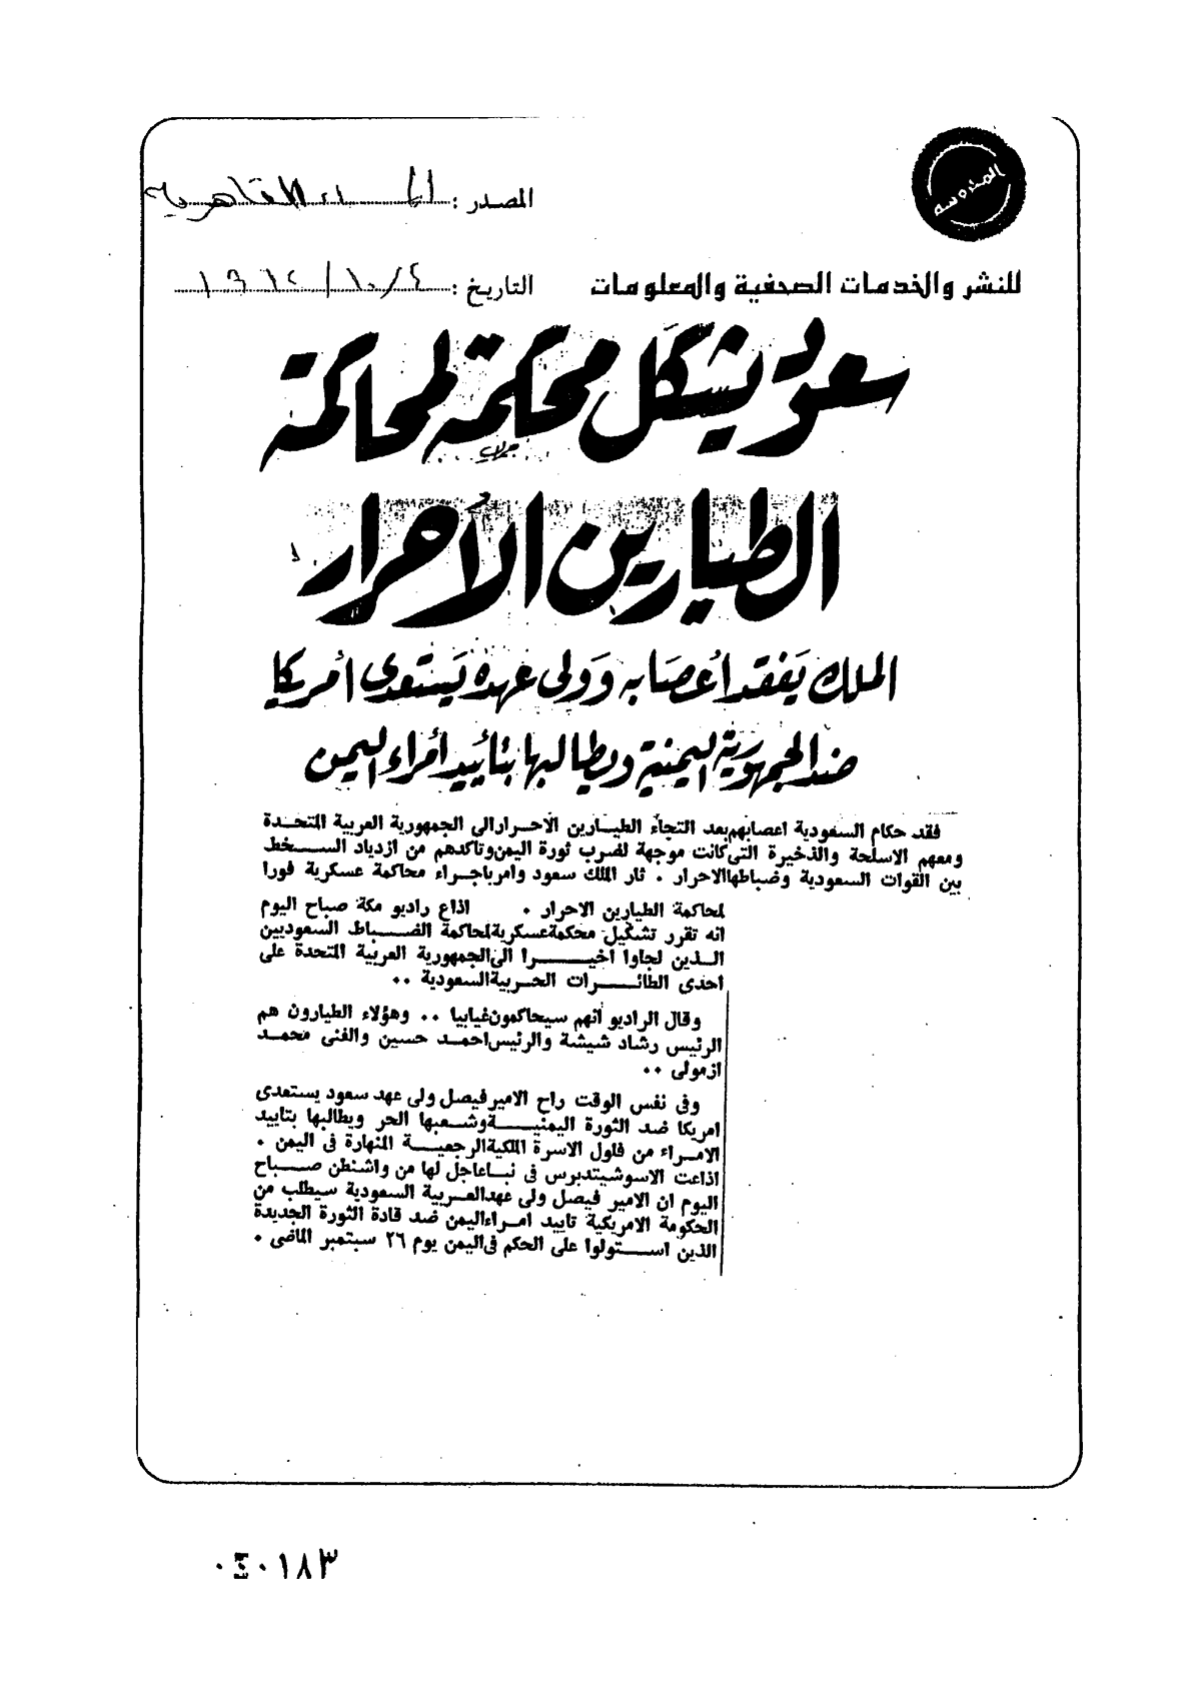 المحروسة
المصدر : المساء القاهرية
للنشر والخدمات الصحفية والمعلومات
التاريخ : ٤/١٠/١٩٦٢
سعود يشكل محكمة لمحاكمة
الطيارين الأحرار
الملك يفقد أعصابه وولى عهده يستعدى أمريكا
ضد الجمهورية اليمنية ويطالبها بتأييد أمراء اليمن
فقد حكام السعودية اعصابهم بعد التجاء الطيارين الاحرار الى الجمهورية العربية المتحدة
ومعهم الاسلحة والذخيرة التى كانت موجهة لضرب ثورة اليمن وتاكدهم من ازدياد السخط
بين القوات السعودية وضباطها الاحرار . ثار الملك سعود وامر باجراء محاكمة عسكرية فورا
لمحاكمة الطيارين الاحرار . اذاع راديو مكة صباح اليوم
انه تقرر تشكيل محكمة عسكرية لمحاكمة الضباط السعوديين
الذين لجاوا اخيرا الى الجمهورية العربية المتحدة على
احدى الطائرات الحربية السعودية ..
وقال الراديو انهم سيحاكمون غيابيا .. وهؤلاء الطيارون هم
الرئيس رشاد شيشة والرئيس احمد حسين والفنى محمد
ازمولى ..
وفى نفس الوقت راح الامير فيصل ولى عهد سعود يستعدى
امريكا ضد الثورة اليمنية وشعبها الحر ويطالبها بتاييد
الامراء من فلول الاسرة الملكية الرجعية المنهارة فى اليمن .
اذاعت الاسوشيتدبرس فى نبا عاجل لها من واشنطن صباح
اليوم ان الامير فيصل ولى عهد العربية السعودية سيطلب من
الحكومة الامريكية تاييد امراء اليمن ضد قادة الثورة الجديدة
الذين استولوا على الحكم فى اليمن يوم ٢٦ سبتمبر الماضى .
٠٤٠١٨٣